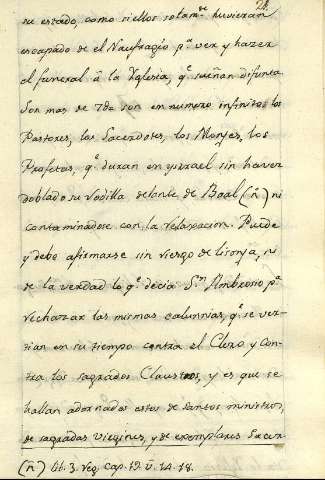 24.
su estado, como si ellos solam.te huvieran
escapado de el Naufragio p.a ver y hazer
el funeral á la Yglesia, q.e sueñan difunta
Son mas de 7@ son en numero infinitos los
Pastores, los Sacerdotes, los Monjes, los
Profetas, q.e duran en Ysrael sin haver
doblado su rodilla delante de Baal (ñ) ni
contaminadose con la relaxacion. Puede
y debe afirmarse sin riesgo de lisonja, ni
de la verdad lo q.e decia S.n Ambrosio p.a
rechazar las mismas calumnias, q.e se ver-
tian en su tiempo contra el Clero y con-
tra los sagrados Claustros, y es que se
hallan adornados estos de santos ministros,
de sagradas virgines, y de exemplares Sacer-
(ñ) lib. 3. Reg. cap. 19. v. 14. 18.